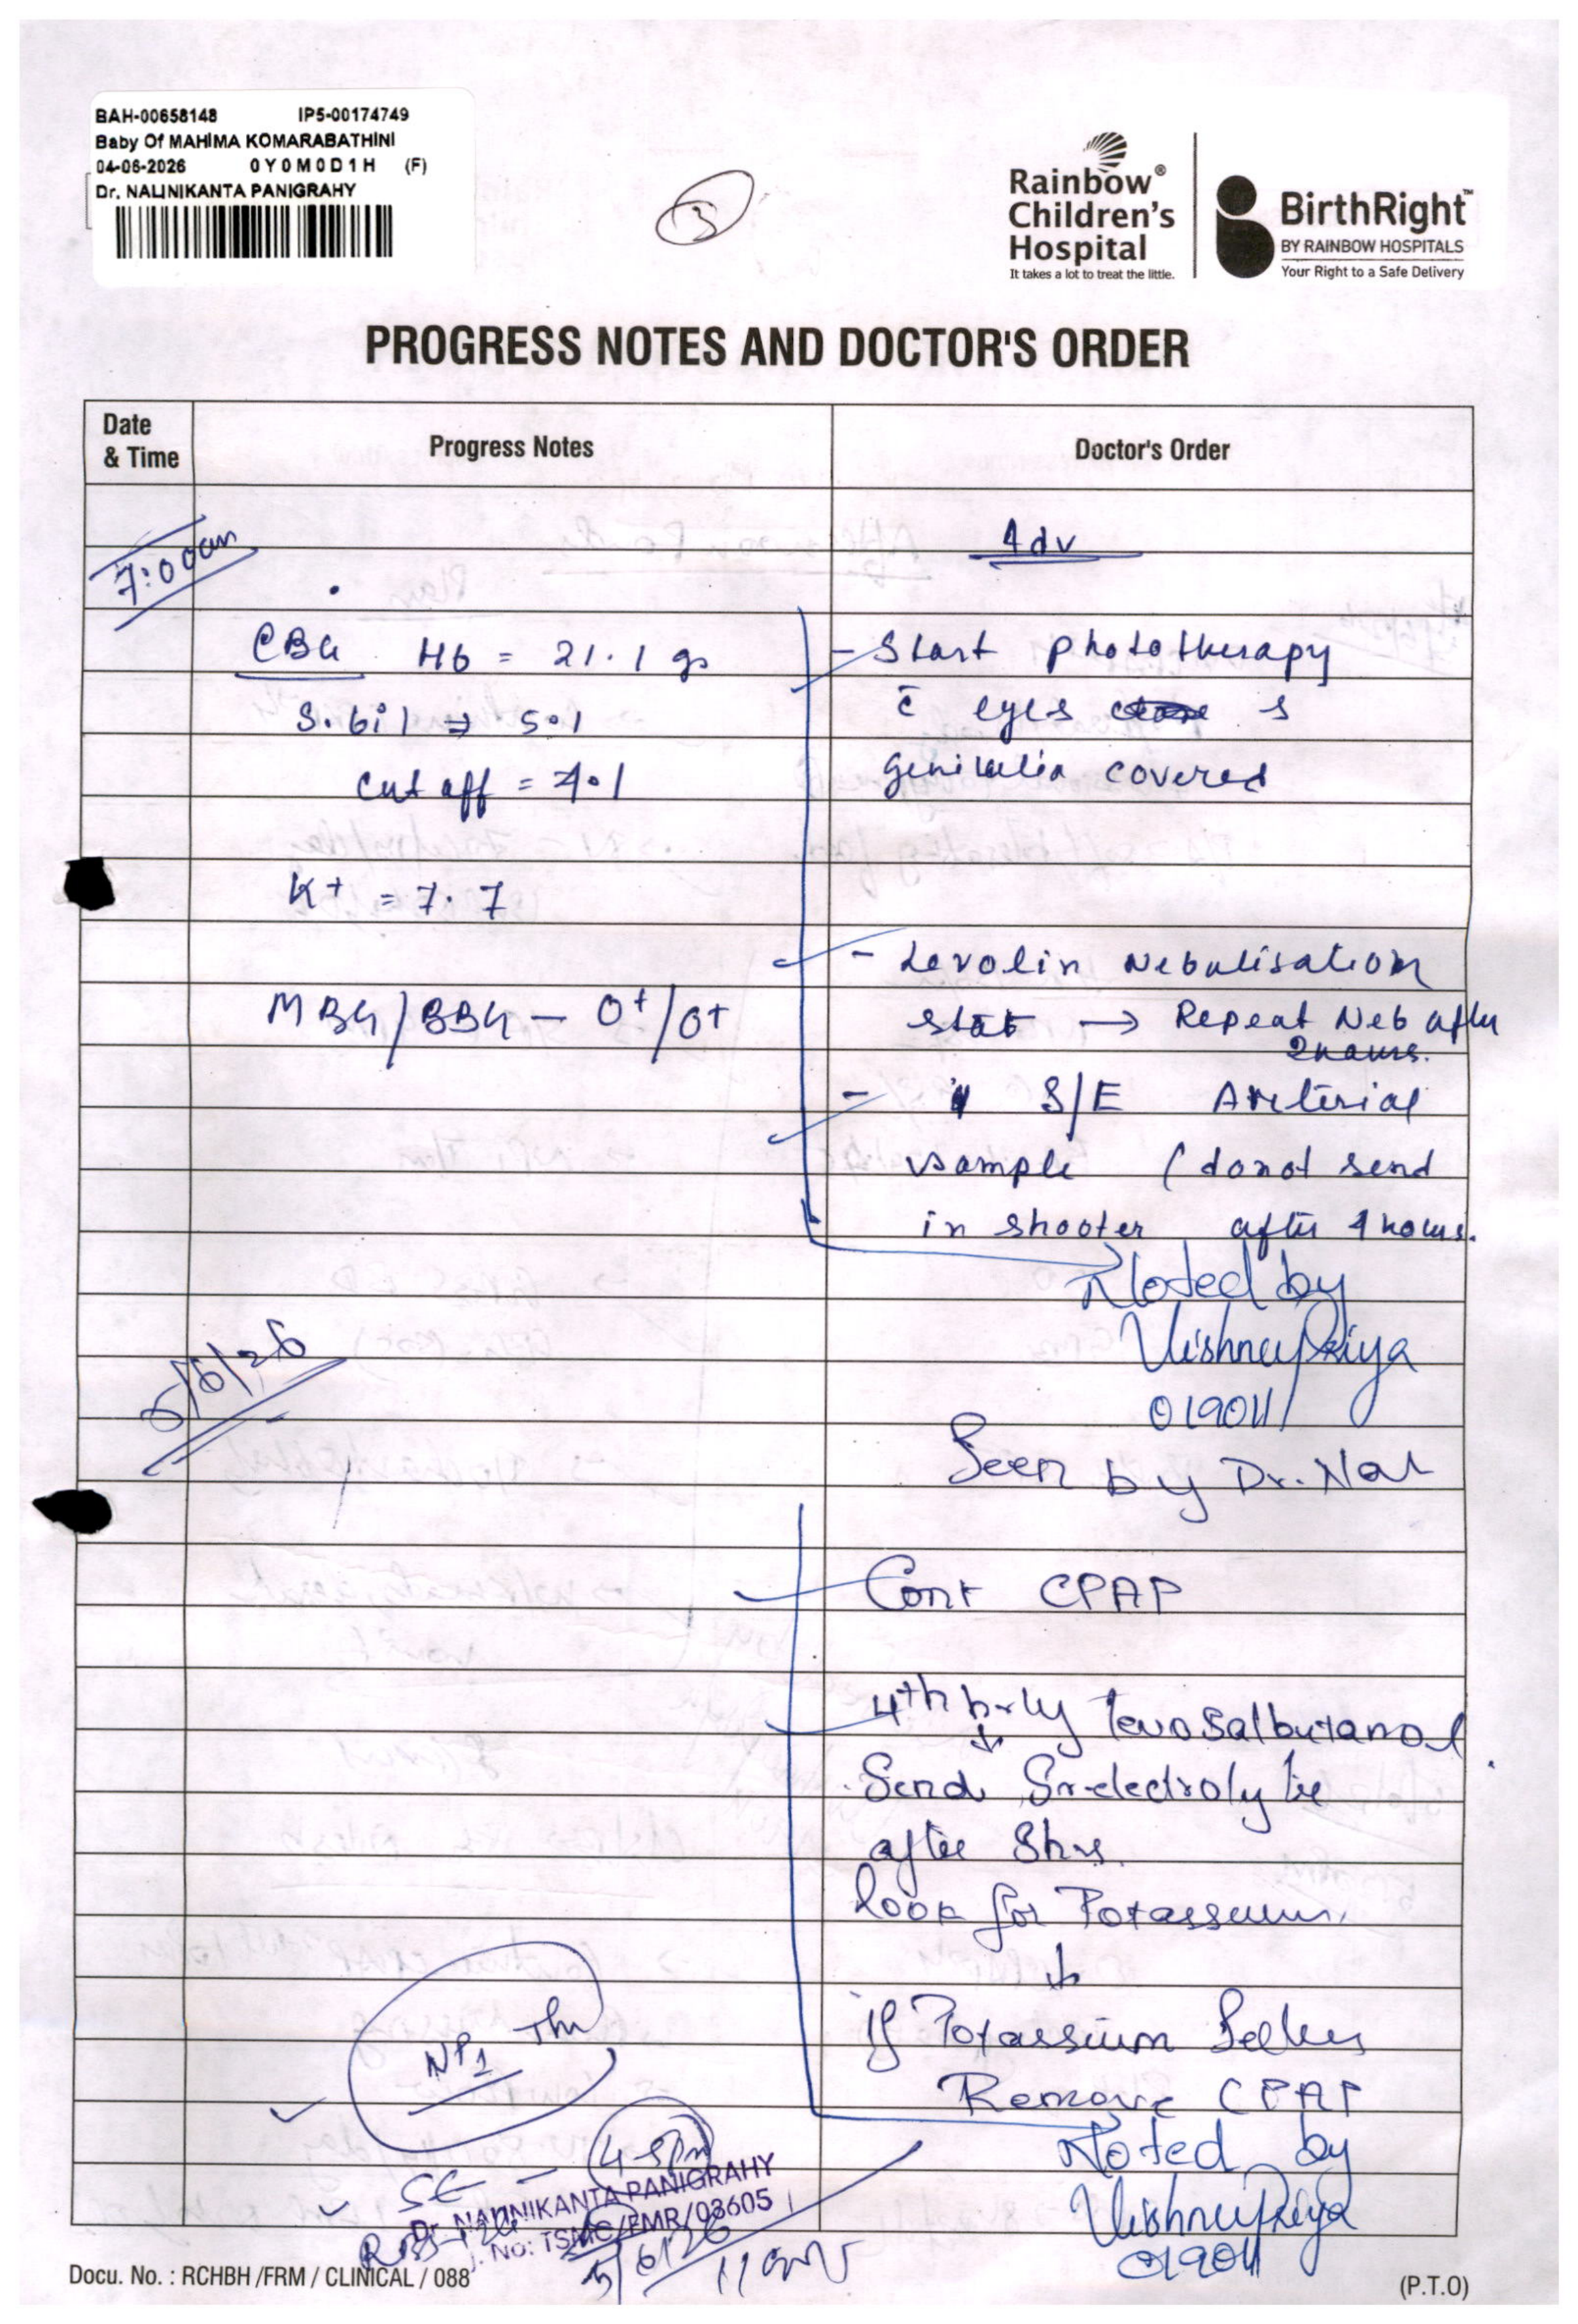 BAH-00658148 IP5-00174749
Baby Of MAHIMA KOMARABATHINI
04-06-2026 0Y0M0D1H (F)
Dr. NALINIKANTA PANIGRAHY
3
Rainbow®
Children's
Hospital
It takes a lot to treat the little.
BirthRight™
BY RAINBOW HOSPITALS
Your Right to a Safe Delivery
PROGRESS NOTES AND DOCTOR'S ORDER
Date
& Time
Progress Notes
Doctor's Order
7:00am
Adv
CBG Hb = 21.1 g
- Start phototherapy
S.bil ⇒ 5.1
c̄ eyes s
cut off = 4.1
genitalia covered
K+ = 7.7
- Levolin Nebulisation
MBG/BBG - O+/O+
stat → Repeat Neb after
2 hours.
- S/E Areterial
sample (donot send
in shooter after 4 hours.
Noted by
VishnuPriya
019011
5/6/26
Seen by Dr. Nal
Cont CPAP
4th hrly levosalbutamol
↓
Send Sr. electrolyte
after 8hrs.
look for Potassium.
↓
If Potassium Settles
Remove CPAP
NP1
Noted by
SE - 4-5pm
VishnuPriya
019011
Dr. NALINIKANTA PANIGRAHY
. No: TSMC/FMR/03605
5/6/26 11am
Docu. No. : RCHBH /FRM / CLINICAL / 088
(P.T.O)